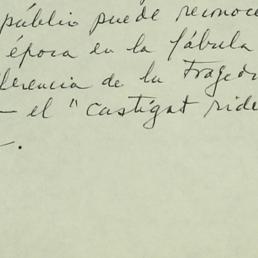 público puede reconoce
época en la fábula
ferencia de la Traged
— el "castigat ride